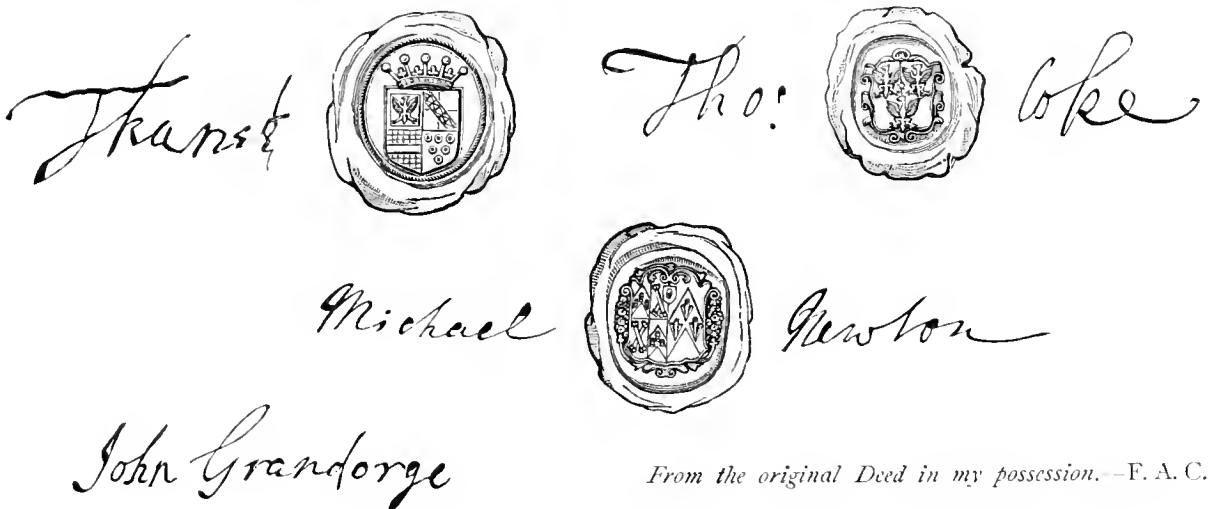 Thanet Tho: Coke
Michael Newton
John Grandorge
From the original Deed in my possession.—F. A. C.